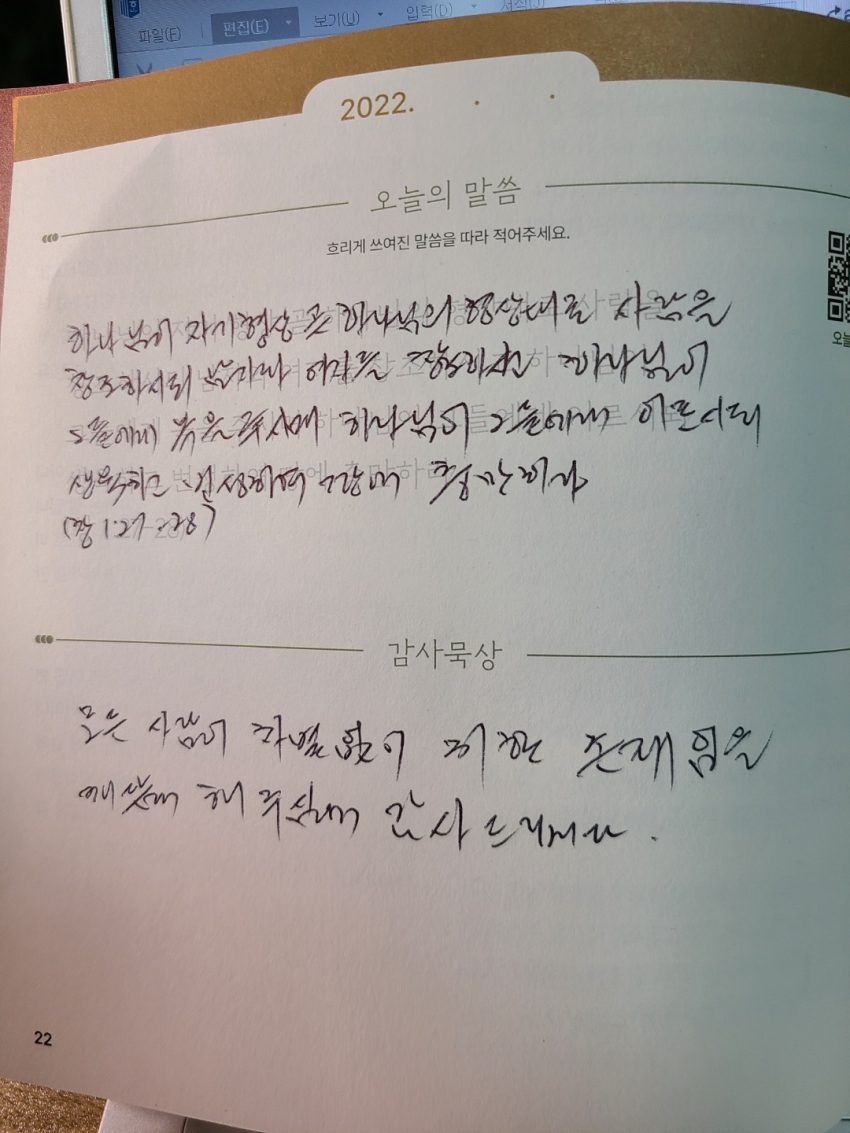 파일(F) 편집(E) 보기(U) 입력(D)
2022. . .
오늘의 말씀
흐리게 쓰여진 말씀을 따라 적어주세요.
하나님이 자기형상 곧 하나님의 형상대로 사람을
창조하시되 남자와 여자를 창조하시고 하나님이
그들에게 복을 주시며 하나님이 그들에게 이르시되
생육하고 번성하여 땅에 충만하라
(창 1:27-28)
오늘
감사묵상
모든 사람이 차별없이 귀한 존재임을
해 주심에 감사드립니다.
22